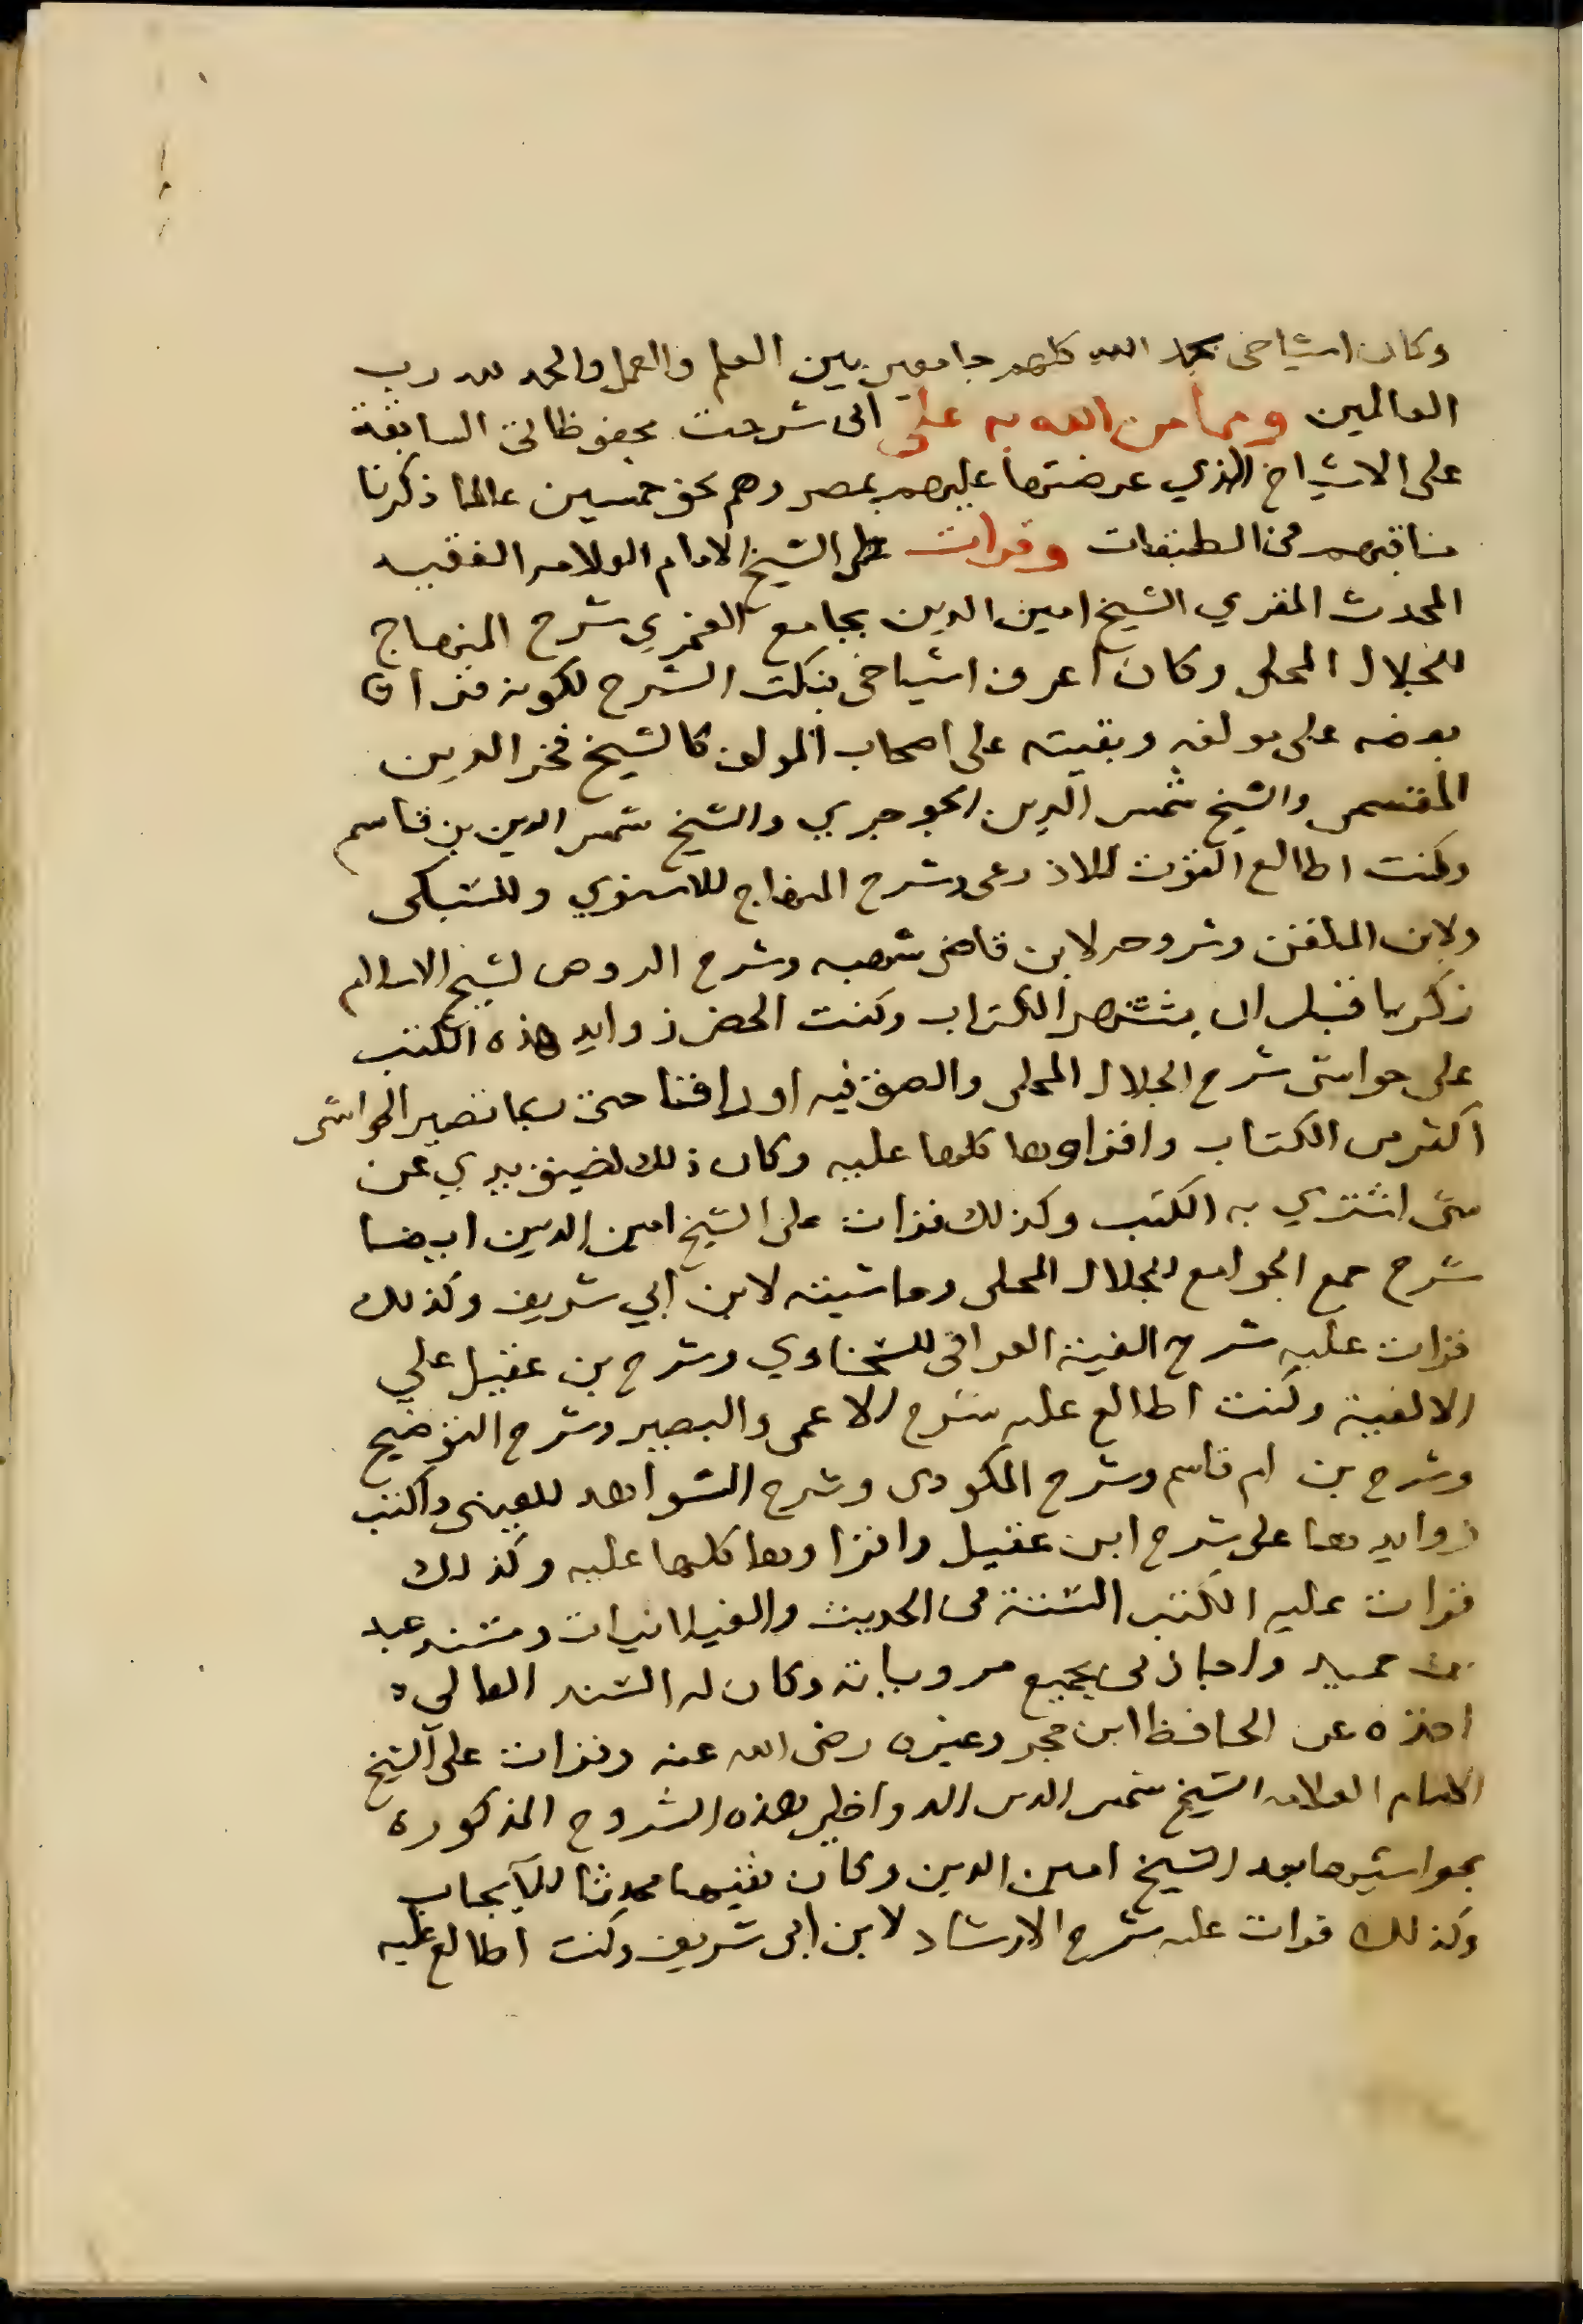 وكان اشياخى بحمد الله كلهم جامعين بين العلم والعمل والحمد لله رب
العالمين ومما من الله به على انى شرحت محفوظاتى السابقة
على الاشياخ الذي عرضتها عليهم بمصر وهم نحو خمسين عالما ذكرنا
مناقبهم فى الطبقات وقرات على الشيخ الامام العلامه الفقيه
المحدث المقري الشيخ امين الدين بجامع الغمري شرح المنهاج
للجلال المحلى وكان اعرف اشياخى بنكت الشرح لكونه قرا
بعضه على مولفه وبقيته على اصحاب المولف كالشيخ فخر الدين
المقسمى والشيخ شمس الدين الجوجري والشيخ شمس الدين بن قاسم
وكنت اطالع القوت للاذرعى وشرح المنهاج للاسنوي وللسبكى
ولابن الملقن وشروحه لابن قاضى شهبه وشرح الروض لشيخ الاسلام
زكريا قبل ان يشتهر الكتاب وكنت الخص زوايد هذه الكتب
على حواشى شرح الجلال المحلى والصق فيه اوراقا حتى ربما تصير الحواشى
اكثر من الكتاب واقراوها كلها عليه وكان ذلك لضيق يدي عن
شى اشتري به الكتب وكذلك قرات على الشيخ امين الدين ايضا
شرح جمع الجوامع للجلال المحلى وحاشيته لابن ابي شريف وكذلك
قرات عليه شرح الفية العراقى للسخاوي وشرح بن عقيل علي
الالفية وكنت اطالع عليه شرح الاعمى والبصير وشرح التوضيح
وشرح بن ام قاسم وشرح المكودى وشرح الشواهد للعينى واكتب
زوايدها على شرح ابن عقيل واقراوها كلها عليه وكذلك
قرات عليه الكتب الستة فى الحديث والغيلانيات ومسند عبد
بن حميد واجازنى بجميع مروياته وكان له السند العالى
اخذه عن الحافظ ابن حجر وغيره رضى الله عنه وقرات على الشيخ
الامام العلامه الشيخ شمس الدين الدواخلى هذه الشروح المذكوره
بحواشيها بعد الشيخ امين الدين وكان فقيها محدثا
وكذلك قرات عليه شرح الارشاد لابن ابى شريف وكنت اطالع عليه